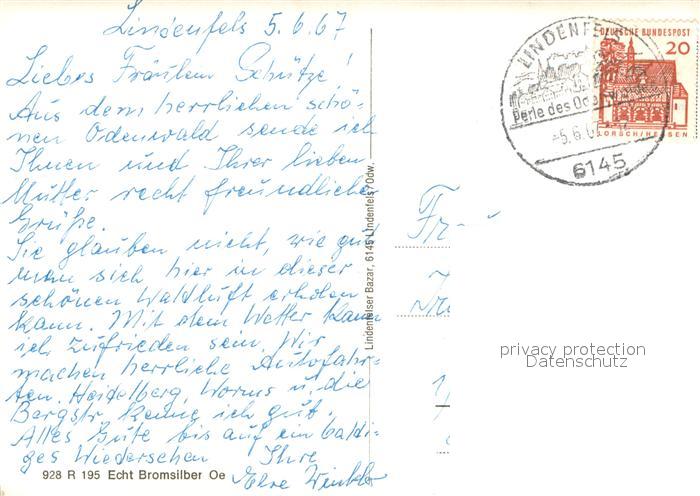 Lindenfels 5.6.67
Liebes Fräulein Schütze!
Aus dem herrlichen schö-
nen Odenwald sende ich
Ihnen und Ihrer lieben
Mutter recht freundliche
Grüße.
Sie glauben nicht, wie gut
man sich hier in dieser
schönen Waldluft erholen
kann. Mit dem Wetter kann
ich zufrieden sein. Wir
machen herrliche Autofahr-
ten. Heidelberg, Worms u. die
Bergstr. kenne ich gut.
Alles Gute bis auf ein baldi-
ges Wiedersehen Ihre
Winkler
928 R 195 Echt Bromsilber Oe
Lindenfelser Bazar, 6145 Lindenfels/Odw.
LINDENFELS
Perle des Odenwaldes
-5.6.6
6145
DEUTSCHE BUNDESPOST
20
LORSCH/HESSEN
Fr
privacy protection
Datenschutz